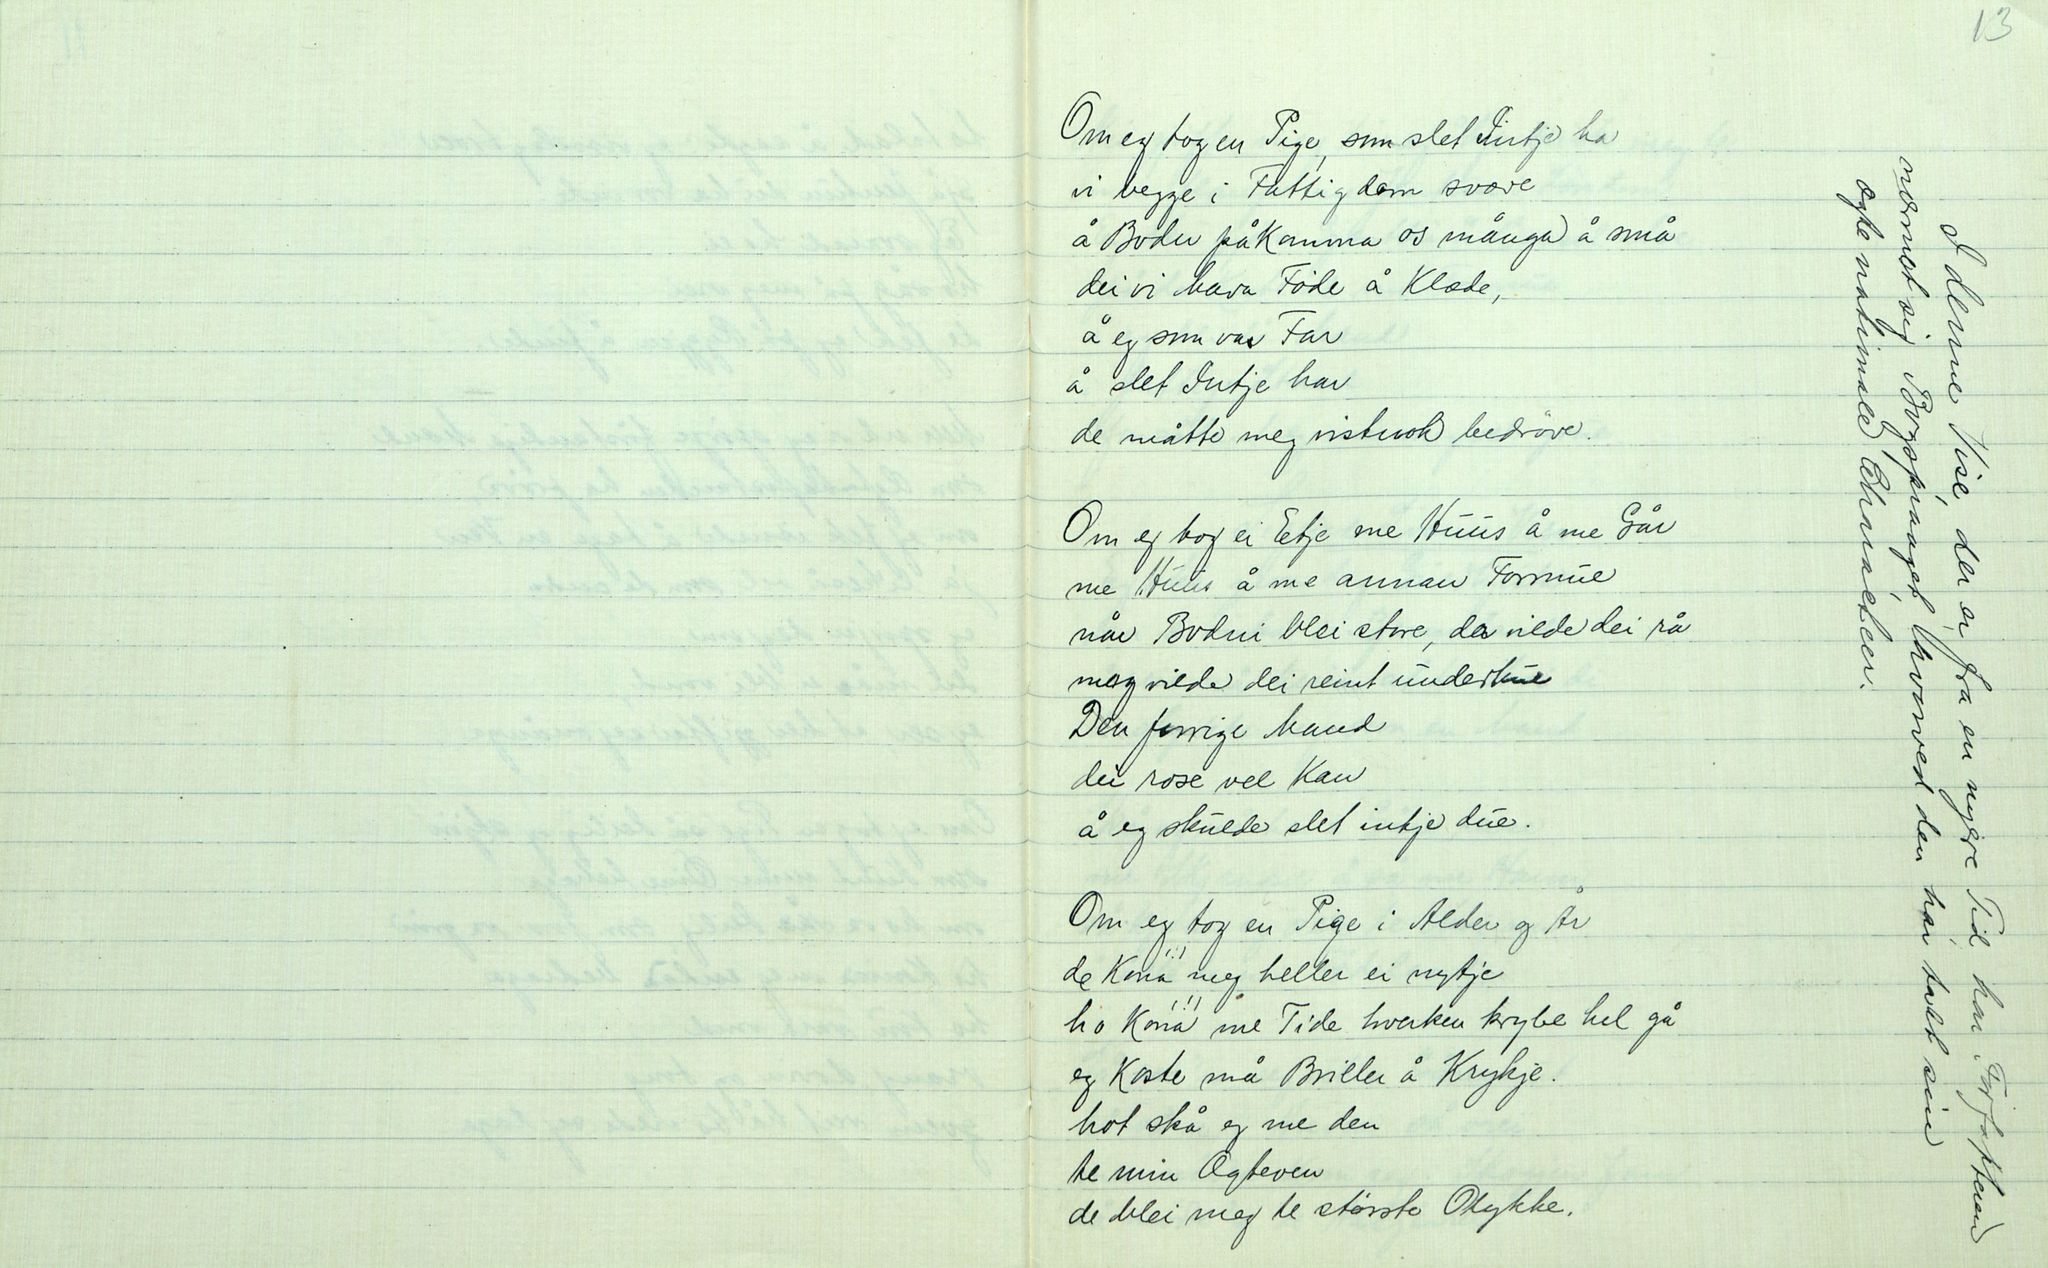 13
Om eg tog en Pige, som slet Intje ha
vi begge i Fattigdom svæve
å Bodn påkomma os många å små
dei vi hava Føde å Klæde,
å eg som var Far
å slet Intje har
de måtte meg vistnok bedrøve.
Om eg tog ei Eetje me Huus å me Går
me Huus å me annan Formue
når Bodni blei store, da vilde dei rå
meg vilde dei reint underkue
Den forrige Mand
dei rose vel Kan
å eg skulde slet intje due.
Om eg tog en Pige i Alder og År
de Konå (!) meg heller ei nytje
ho Konå (!) me Tide hverken krybe hel gå
eg Koste må Briller å Krykje.
hot skå eg me den
te min Ægteven
de blei meg te største Olykke.
I denne Vise, der er fra en nyere Tid har Forfatteren
nærmet sig Bogsproget, hvorved den har tabt sin
ægte nationale Charakter.